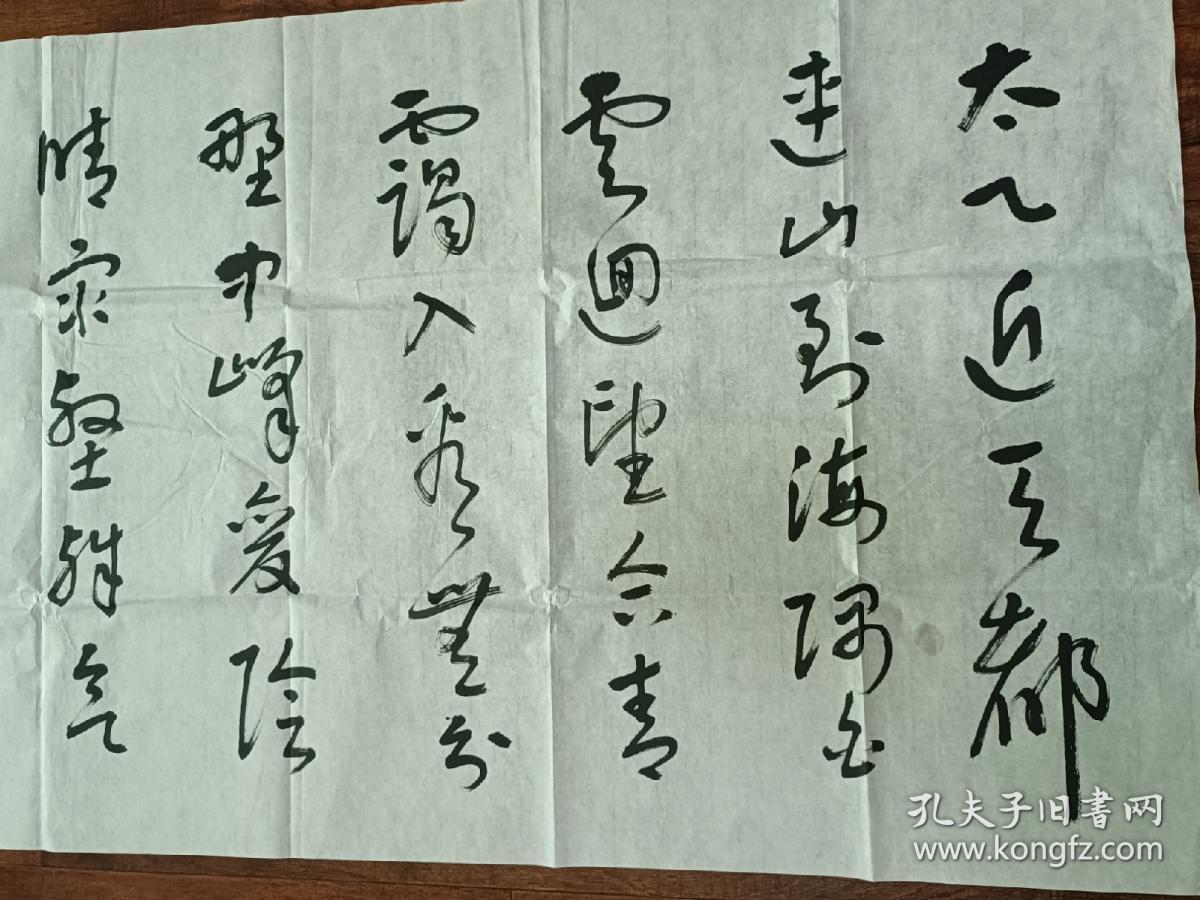 太乙近天都
連山到海隅白
雲迴望合青
靄入看無分
野中峰變陰
晴眾壑殊
孔夫子旧書网
www.kongfz.com